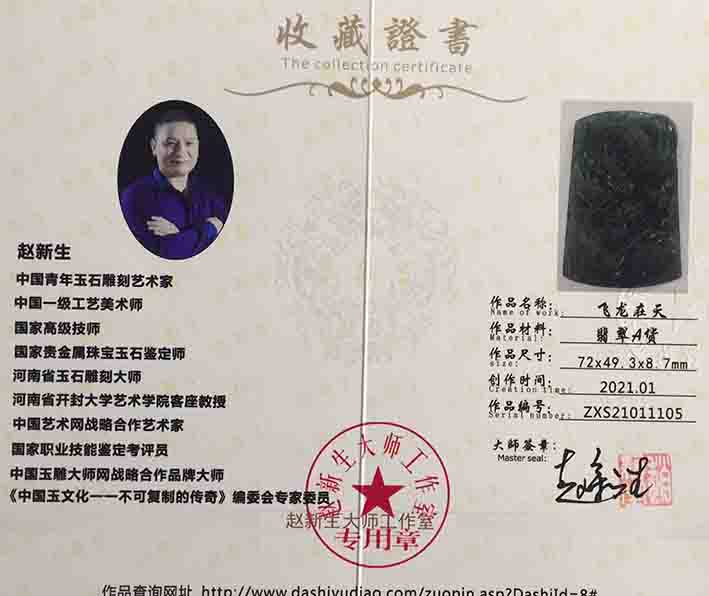 收藏證書
The collection certificate
赵新生
中国青年玉石雕刻艺术家
中国一级工艺美术师
国家高级技师
国家贵金属珠宝玉石鉴定师
河南省玉石雕刻大师
河南省开封大学艺术学院客座教授
中国艺术网战略合作艺术家
国家职业技能鉴定考评员
中国玉雕大师网战略合作品牌大师
《中国玉文化——不可复制的传奇》编委会专家委员
作品名称: 飞龙在天
Name of work:
作品材料: 翡翠A货
Material:
作品尺寸: 72x49.3x8.7mm
size:
创作时间: 2021.01
Creation time:
作品编号: ZXS21011105
Serial number:
大师签章:
Master seal:
赵新生大师工作室
专用章
赵新生大师工作室
作品查询网址 http://www.dashiyudiao.com/zuopin.asp?DashiId=8#